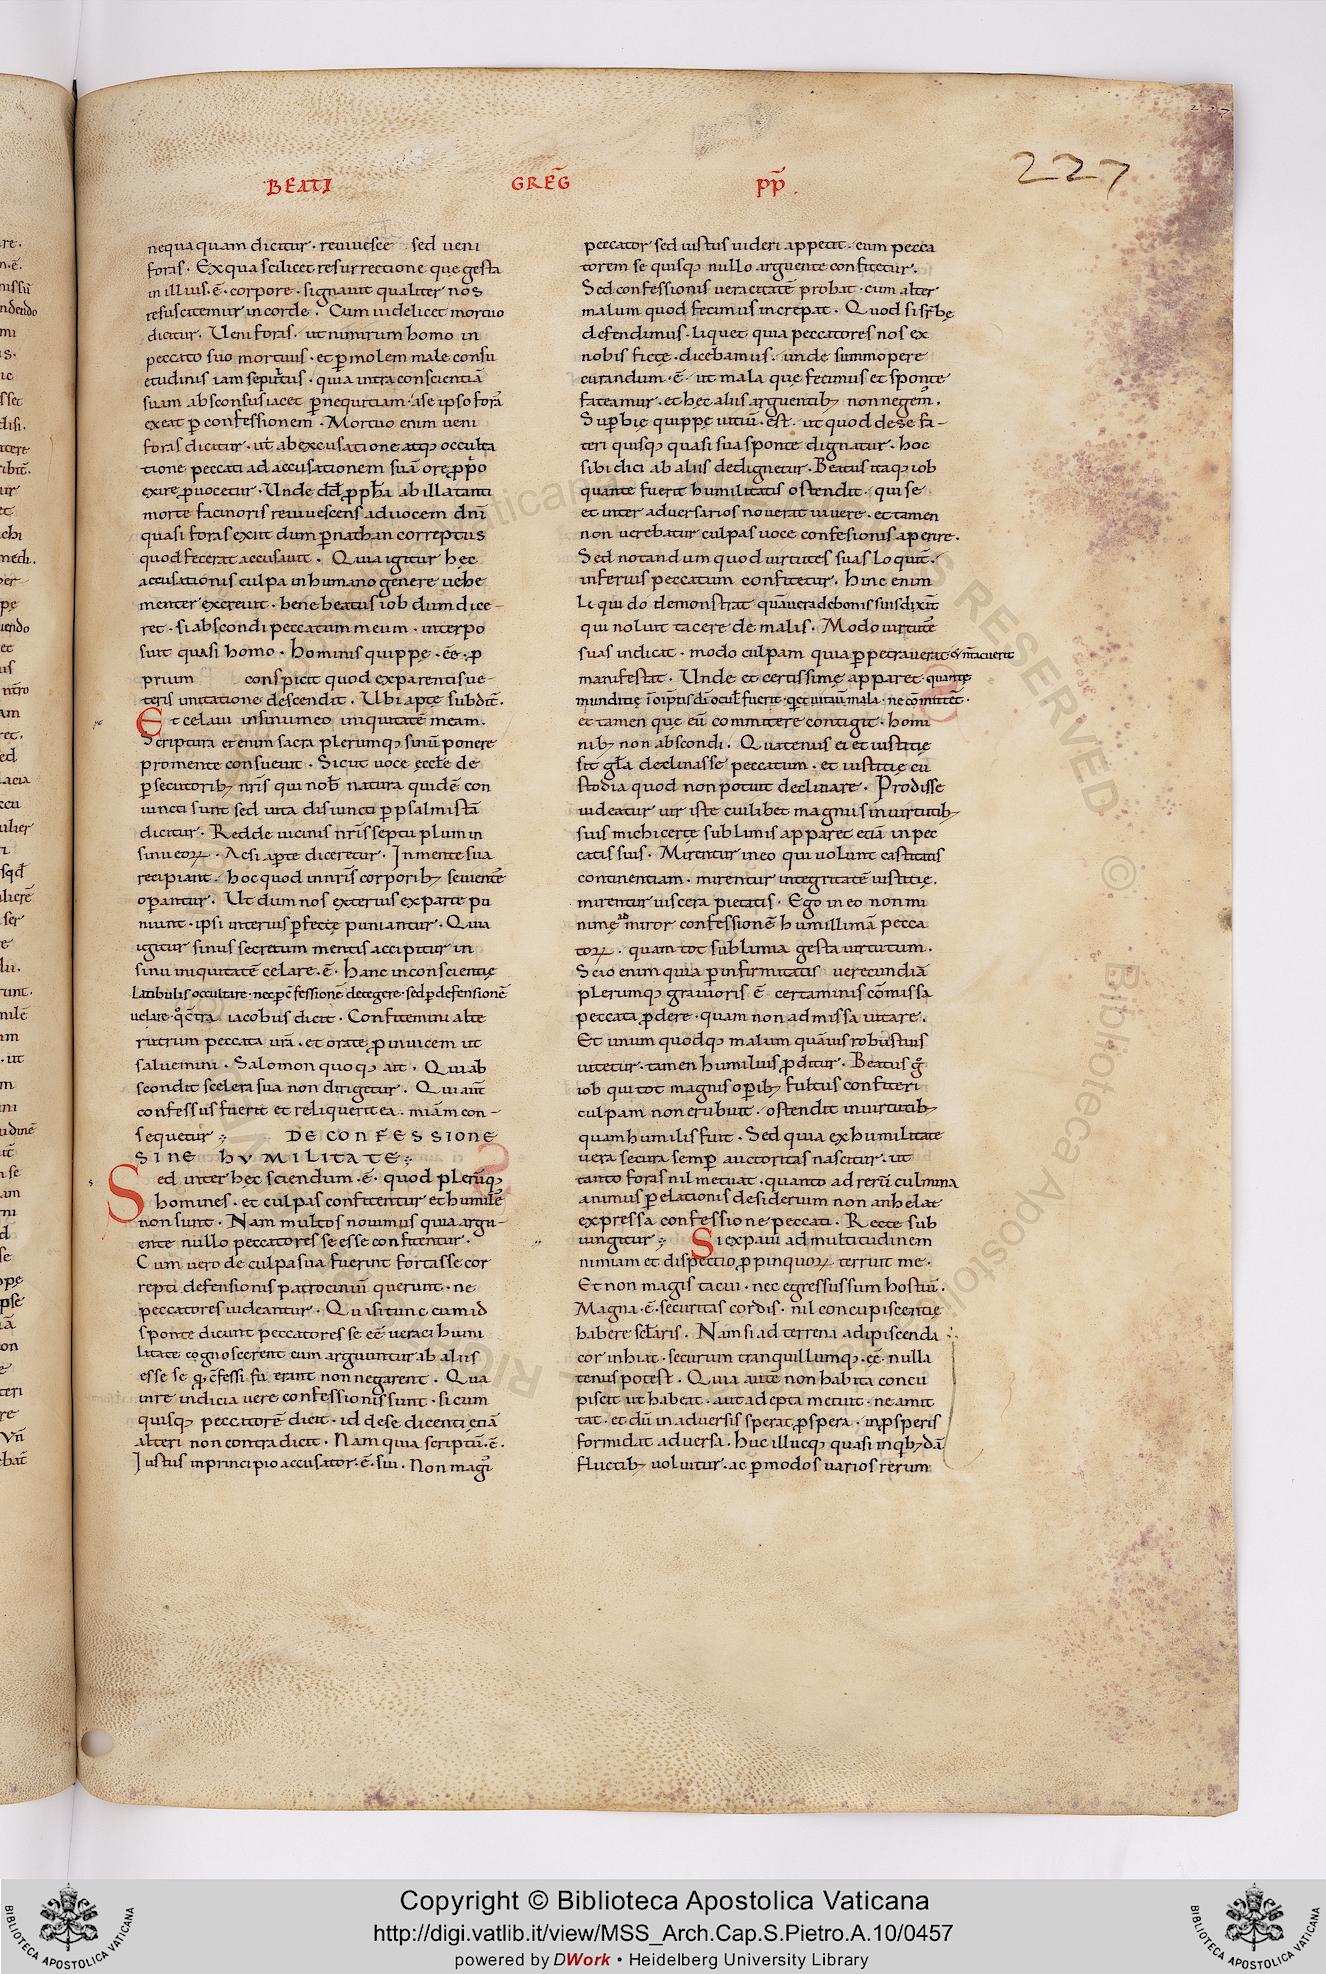 BEATI GREG̅ PP̅.
227
nequaquam dicitur· reuiuesce sed ueni
foras· Ex qua scilicet resurrectione quę gesta
in illius ·ē· corpore· signauit qualiter nos
resuscitemur in corde. Cum uidelicet mortuo
dicitur· Ueni foras· ut nimirum homo in
peccato suo mortuus· et ꝑ molem male consu
etudinis iam sepultus· quia intra conscientiā
suam absconsus iacet ꝑ nequitiam· a se ipso foras
exeat ꝑ confessionem. Mortuo enim ueni
foras dicitur· ut ab excusatione atqꝫ occulta
tione peccati ad accusationem suā ore ꝓprio
exire ꝓuocetur· Unde dd̄ ꝓph̄a ab illa tanti
morte facinoris reuiuescens ad uocem dn̄i
quasi foras exiit dum ꝑ nathan correptus
quod fecerat accusauit. Quia igitur hęc
accusationis culpa in humano genere uehe
menter excreuit· bene beatus iob dum dice-
ret· si abscondi peccatum meum· interpo
suit quasi homo. hominis quippe· ēē· ꝓ
prium conspicit quod ex parentis ue-
teris imitatione descendit. Ubi apte subdit̄.
Et celaui in sinu meo iniquitatē meam.
Scriptura etenim sacra plerumqꝫ sinū ponere
pro mente consueuit. Sicut uoce ęccl̄ę de
ꝑsecutoribꝫ nr̄is qui nob̄ natura quidē con
iuncti sunt sed uita disiuncti ꝑ psalmistā
dicitur· Redde uicinis nr̄is septuplum in
sinu eoꝝ. Ac si aꝑte diceretur· In mente sua
recipiant· hoc quod in nr̄is corporibꝫ seuientes
oꝑantur. Ut dum nos exterius ex parte pu
niunt· ipsi interius ꝑfecte puniantur. Quia
igitur sinus secretum mentis accipitur in
sinu iniquitatē celare ·ē· hanc in conscientię
latibulis occultare· nec ꝑ c̄fessionē detegere· sed ꝑ defensionē
uelare· qͦ c̄tra iacobus dicit. Confitemini alte
rutrum peccata ur̄a· et orate ꝓ inuicem ut
saluemini. Salomon quoqꝫ ait. Qui ab
scondit scelera sua non dirigetur. Qui aut̄
confessus fuerit et reliquerit ea· miam con-
sequetur· DE CONFESSIONE
SINE hVMILITATE·
Sed inter hęc sciendum ·ē· quod plerūqꝫ
homines· et culpas confitentur et humiles
non sunt. Nam multos nouimus quia argu-
ente nullo peccatores se esse confitentur.
Cum uero de culpa sua fuerint fortasse cor
repti defensionis patrocinium querunt· ne
peccatores uideantur. Qui si tunc cum id
sponte dicunt peccatores se ēē ueraci humi
litate cognoscerent cum arguuntur ab aliis
esse se c̄fessi fuerant non negarent. Qua
in re indicia uere confessionis sunt· si cum
quisqꝫ peccatorē dicit· id de se dicenti etiā
alteri non contradicit. Nam quia scriptū ·ē·
Iustus in principio accusator ·ē· sui. Non magis
peccator sed iustus uideri appetit· cum pecca
torem se quisqꝫ nullo arguente confitetur.
Sed confessionis ueracitatē probat· cum alter
malum quod fecimus increpat. Quod si sup̄bę
defendimus· liquet quia peccatores nos ex
nobis fictę dicebamus. unde summopere
curandum ·ē· ut mala quę fecimus et sponte
fateamur· et hęc aliis arguentibꝫ non negem̄.
Suꝑbię quippe uitiū ·est· ut quod de se fa-
teri quisqꝫ quasi sua sponte dignatur· hoc
sibi dici ab aliis dedignetur. Beatus itaqꝫ iob
quante fuerit humilitatis ostendit· qui se
et inter aduersarios nouerat uiuere· et tamen
non uerebatur culpas uoce confesionis aperire.
Sed notandum quod uirtutes suas loquit̄·
inferius peccatum confitetur. hinc enim
liquido demonstrat quā uera de bonis suis dixit
qui noluit tacere de malis. Modo uirtutes
suas indicat· modo culpam quia ꝑpetrauerat et n̄ tacuerit
manifestat. Unde et certissime apparet quante
et tamen quę eū committere contigit· homi
nibꝫ non abscondi. Quatenus ei et iustitię
sit gl̄a declinasse peccatum· et iustitię cu
stodia quod non potuit declinare. Prodisse
uideatur uir iste cuilibet magnus in uirtutibꝫ
suis michi certe sublimis apparet etiā in pec
catis suis. Mirentur in eo qui uolunt castitatis
continentiam· mirentur integritatē iustitię.
mirentur uiscera pietatis. Ego in eo non mi
nime admiror confessionē humillimā pecca
toꝝ· quam tot sublimia gesta uirtutum.
Scio enim quia ꝑ infirmitatis uerecundiā
plerumqꝫ grauioris ē certaminis cōmissa
peccata ꝓdere· quam non admissa uitare.
Et unum quodqꝫ malum quāuis robustius
uitetur· tamen humilius ꝓditur. Beatus g̊
iob qui tot magnis oꝑibꝫ fultus confiteri
culpam non erubuit· ostendit in uirtutibꝫ
quam humilis fuit. Sed quia ex humilitate
uera secura semꝑ auctoritas nascitur· ut
tanto foras nil metuat· quanto ad rerū culmina
animus ꝑ elationis desiderium non anhelat
expressa confessione peccati. Recte sub
iungitur· Si expaui ad multitudinem
nimiam et dispectio ꝓpinquoꝝ terruit me·
Et non magis tacui· nec egressus sum hostiū.
Magna ·ē· securitas cordis· nil concupiscentię
habere sc̄laris. Nam si ad terrena adipiscenda
cor inhiat· securum tranquillumqꝫ ·ēē· nulla
tenus potest. Quia aut̄ non habita concu
piscit ut habeat· aut adepta metuit· ne amit
tat· et dū in aduersis sperat ꝓspera· in ꝓsperis
formidat aduersa. huc illucqꝫ quasi in qibꝫdā
fluctibꝫ uoluitur· ac ꝑ modos uarios rerum
Copyright © Biblioteca Apostolica Vaticana
http://digi.vatlib.it/view/MSS_Arch.Cap.S.Pietro.A.10/0457
powered by DWork • Heidelberg University Library